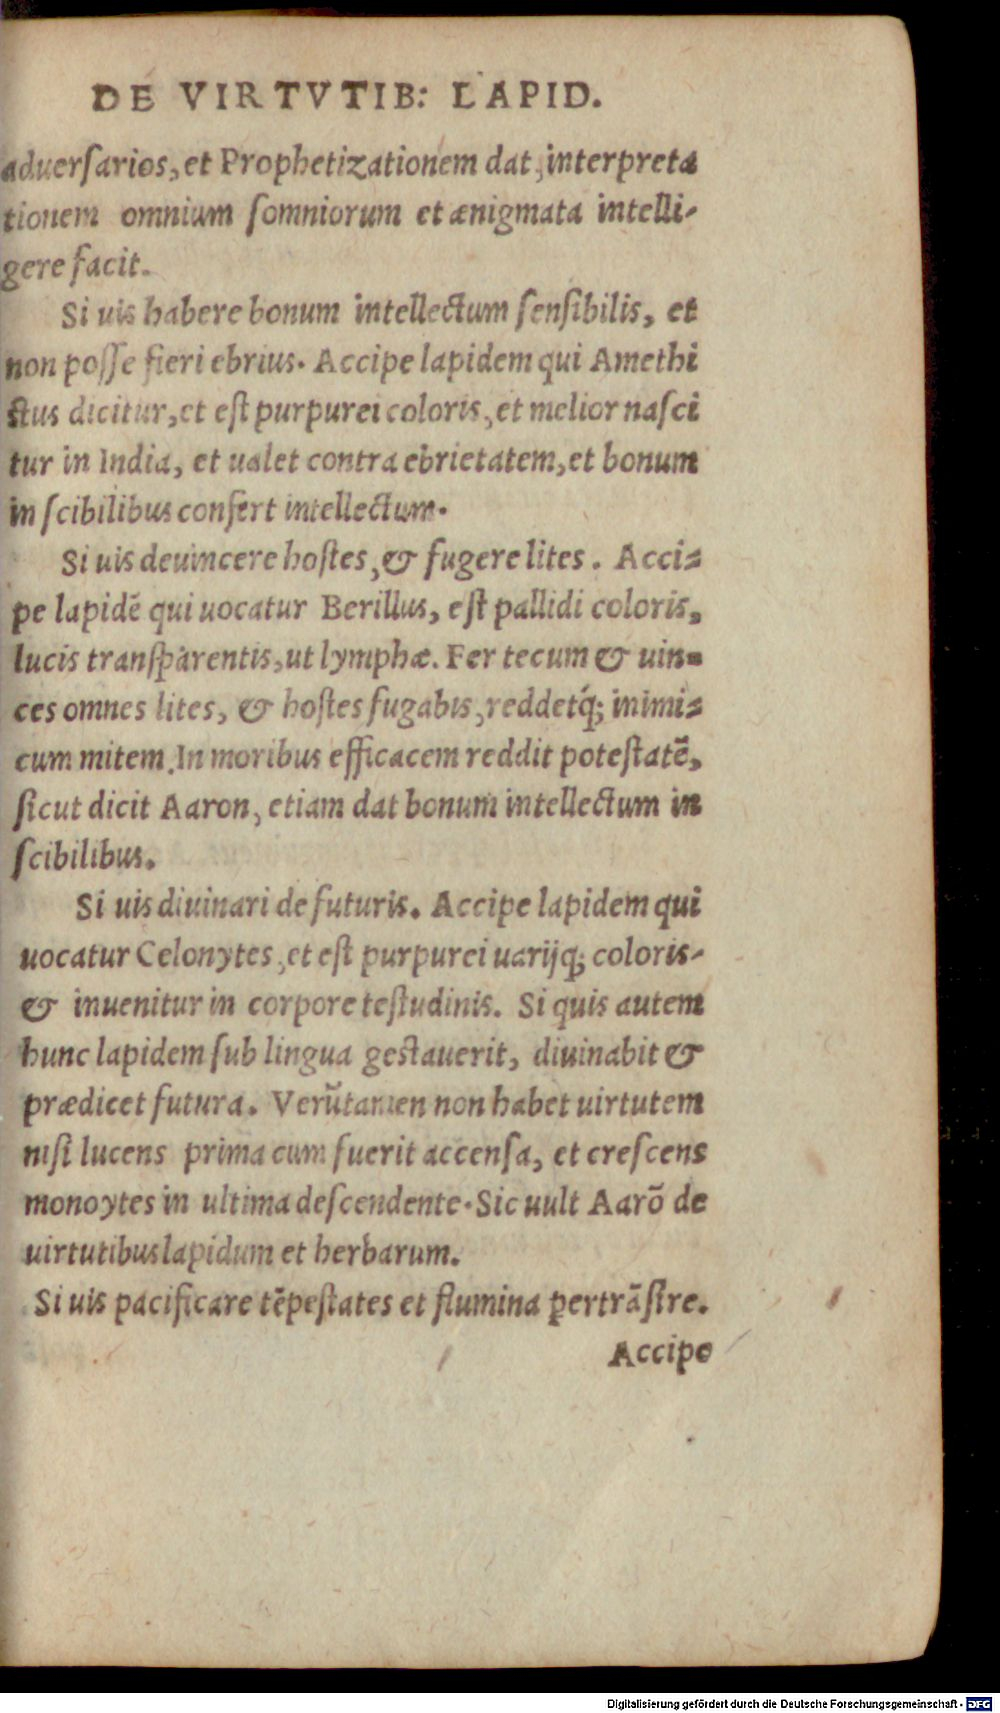 DE VIRTVTIB: LAPID.
aduerſarios, et Prophetizationem dat, interpreta
tionem omnium ſomniorum et ænigmata intelli-
gere facit.
Si uis habere bonum intellectum ſenſibilis, et
non poſſe fieri ebrius. Accipe lapidem qui Amethi
ſtus dicitur, et eſt purpurei coloris, et melior naſci
tur in India, et ualet contra ebrietatem, et bonum
in ſcibilibus confert intellectum.
Si uis deuincere hoſtes, & fugere lites. Acci-
pe lapidē qui uocatur Berillus, eſt pallidi coloris,
lucis tranſparentis, ut lymphæ. Fer tecum & uin-
ces omnes lites, & hoſtes fugabis, reddetq́; inimi-
cum mitem. In moribus efficacem reddit poteſtatē,
ſicut dicit Aaron, etiam dat bonum intellectum in
ſcibilibus.
Si uis diuinari de futuris. Accipe lapidem qui
uocatur Celonytes, et eſt purpurei uarijq; coloris-
& inuenitur in corpore teſtudinis. Si quis autem
hunc lapidem ſub lingua geſtauerit, diuinabit &
prædicet futura. Verũtamen non habet uirtutem
niſi lucens prima cum fuerit accenſa, et creſcens
monoytes in ultima deſcendente. Sic uult Aarō de
uirtutibus lapidum et herbarum.
Si uis pacificare tēpeſtates et flumina ꝑertrāſire.
Accipe
Digitalisierung gefördert durch die Deutsche Forschungsgemeinschaft - DFG